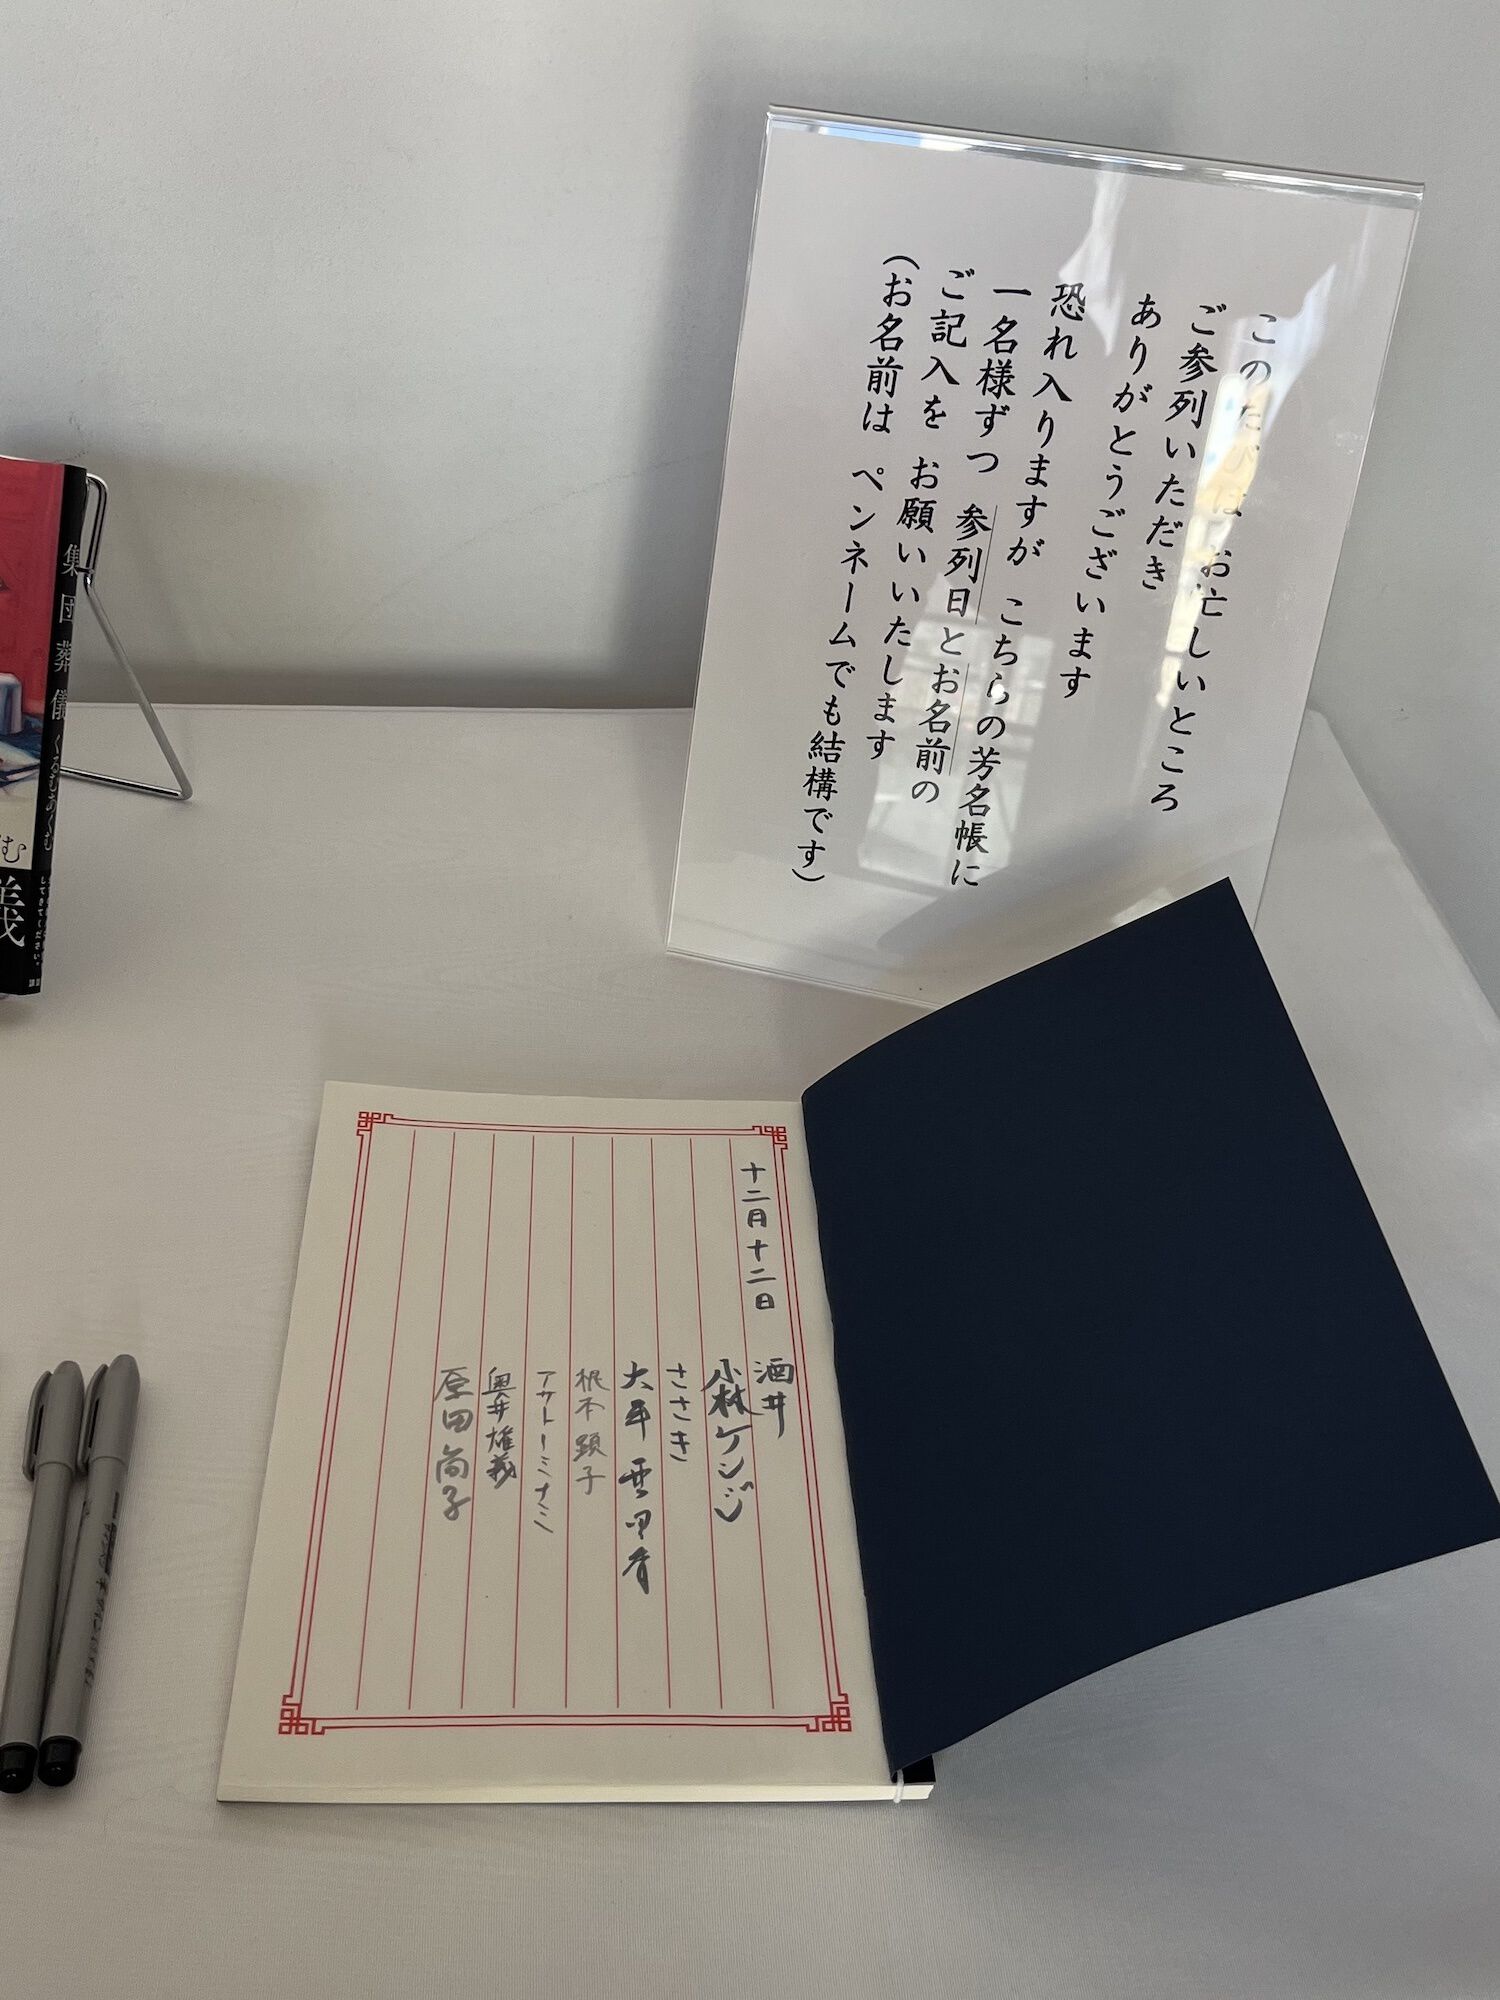 このたびは お忙しいところ
ご参列いただき
ありがとうございます
恐れ入りますが こちらの芳名帳に
一名様ずつ 参列日とお名前の
ご記入を お願いいたします
(お名前は ペンネームでも結構です)
十二月十二日
酒井
小林ケンジ
ささき
根本顕子
アサトーミナミ
奥井雄義
原田尚子
集団葬儀 くるむあくむ
む
義